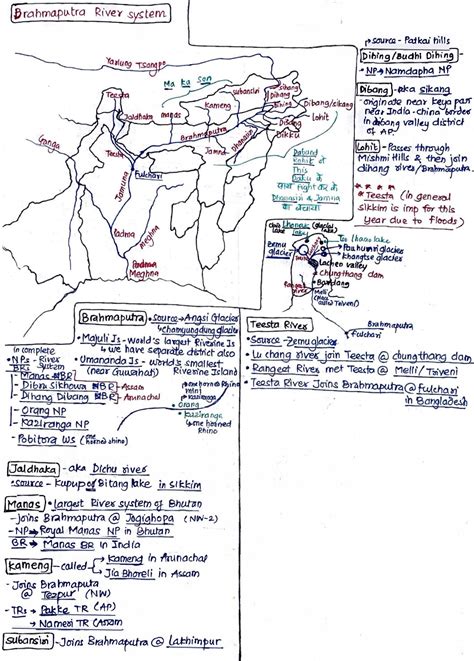 Brahmaputra River system
Yarlung Tsangpo
Ma ka Son
Teesta
Jaldhaka
manas
Kameng
subansiri
sikang
Dihang
Dihing
Dibang/sikang
Lohit
Disang
Dikku
Brahmaputra
Dhansiri
Jamna
Ganga
Teesta
Fulchari
Jamuna
Padma
Meghna
Padma
Meghna
Dabang
Lohit ने
This
Daku के
साथ
Dhansiri & Jamna
का
source - Patkai hills
Dihing/Budhi Dihing
→ NP → Namdapha NP
Dibang - aka sikang
- originate near keya pass
near India - china border
in dibang valley district
of AP.
Lohit - Passes through
Mishmi Hills & then join
dihang rives/Brahmaputra.
Teesta (in general
sikkim is imp for this
year due to floods)
Zemu
glacier
Tso lhamo lake
Pauhunri glacier
Khangtse glacier
Lachen valley
chungthang dam
Bardang
Rangeet River
Melli
Brahmaputra
fulchari
Brahmaputra
• Source → Angsi Glacier
↳ chamyungdung glacier
• Majuli Is - world's largest Riverine Is
↳ we have separate district also
• Umananda Is - world's smallest
(near Guwahati) Riverine Island
in complete
• NPs - River
BRs System
- Manas NBR
- Dibru Sikhowa NBR → Assam
- Dihang Dibang NBR → Arunachal
- Orang NP
- Kaziranga NP
- Pobitora WS (one horned rhino)
one horned Rhino
→ Kaziranga
• Orang
• Kaziranga
one horned
Rhino
Teesta River
- Source - Zemu glacier
- Lu chang river join Teesta @ chungthang dam
- Rangeet River met Teesta @ Melli/Triveni
- Teesta River Joins Brahmaputra @ fulchari
in Bangladesh
Jaldhaka - aka Dichu river
• source - Kupup or Bitang lake in sikkim
Manas • largest River system of Bhutan
- joins Brahmaputra @ Jogighopa (NW-2)
- NP → Royal Manas NP in Bhutan
BR → Manas BR in India
Kameng - called → Kameng in Arunachal
→ Jia Bhoreli in Assam
- Joins Brahmaputra
@ Tezpur (NW)
- TRs → Pakke TR (AP)
→ Nameri TR (Assam
Subansiri - Joins Brahmaputra @ Lakhimpur